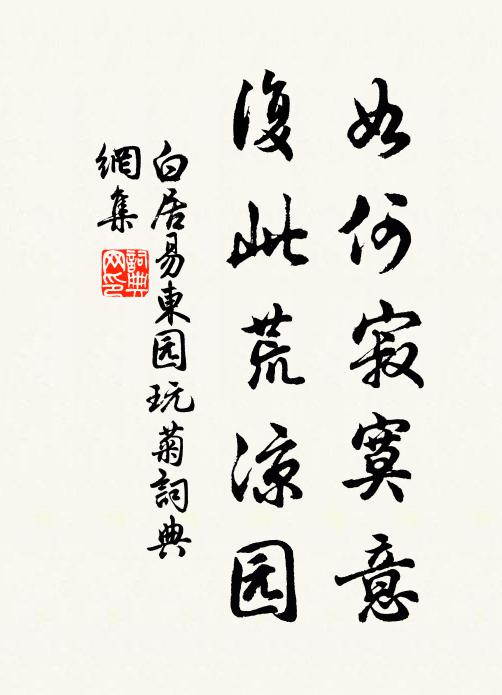 如何寂寞意
復此荒凉园
白居易東园玩菊詞典
網集
詞典
网印